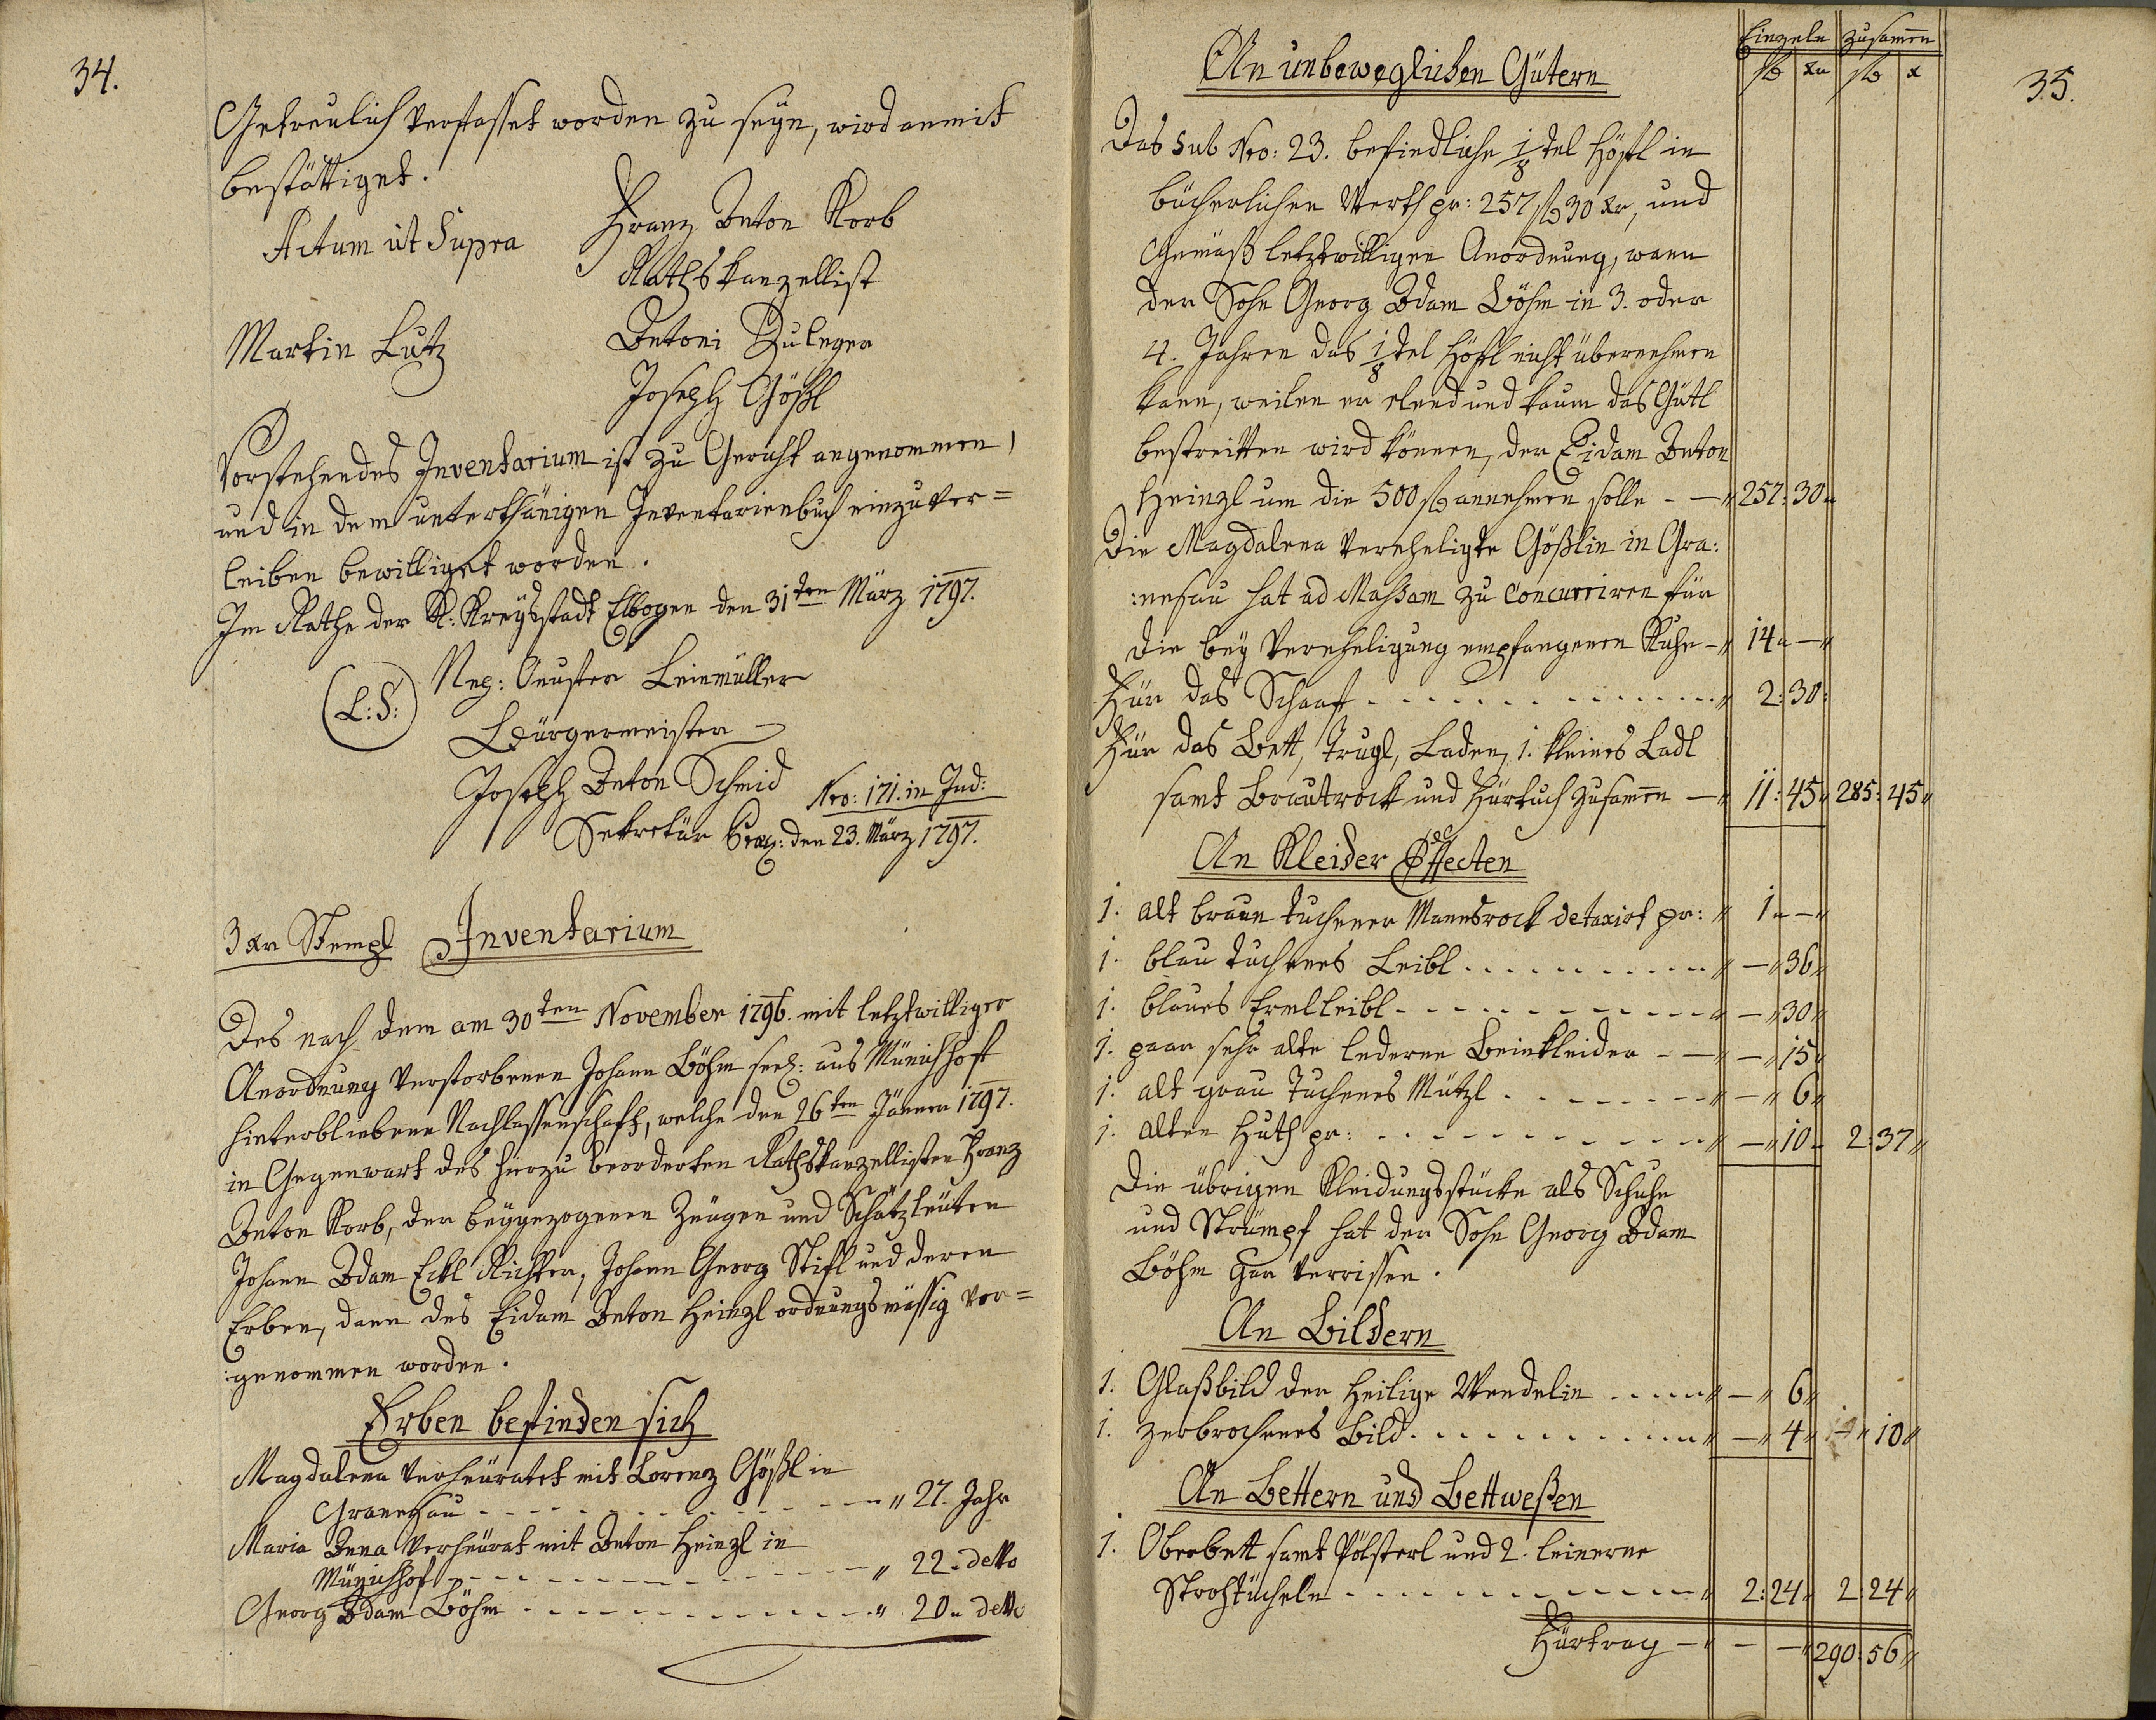 34.
Getreulich verfasset worden zu seÿn, wird anmit
bestättiget.
Actum ut Supra
Franz Anton Korb
Rathskanzellist
Martin Lutz
Antoni Zuleger
Joseph Gößl
Vorstehendes Inventarium ist zu Gericht angenommen,
und in dem unterthänigen Inventarienbuch einzuver=
leiben bewilliget worden.
Im Rathe der K: Kreÿsstadt Elbogen den 31ten März 1797.
(L:S:)
Leinmüller
Bürgermeister
Joseph Anton Schmid
Sekretär
Nro: 171. in Ind:
Prax: den 23. März 1797.
3 xr Stempl Inventarium
Des nach dem am 30ten November 1796. mit letztwilliger
Anordnung verstorbenen Johann Böhm seel: aus Münichhoff
hinterbliebene Nachlassenschaft, welche den 26ten Jänner 1797.
in Gegenwart des hierzu beorderten Rathskanzellisten Franz
Anton Korb, der beÿgezogenen Zeugen und Schätzleüten
Johann Adam Eckl Richter, Johann Georg Stifl und deren
Erben, dann des Eidam Anton Heinzl ordnungsmässig vor=
genommen worden.
Erben befinden sich
Magdalena verheüratet mit Lorenz Gößl in
Granesau - - - - - - - - - - - - „ 27. Jahr
Maria Anna verheürat mit Anton Heinzl in
Münichhof - - - - - - - - - - - - „ 22. detto
Georg Adam Böhm - - - - - - - - - - - - „ 20„ detto
35.
Einzeln zusamen
fl xr fl x
An unbeweglichen Gütern
Das sub Nro: 23. befindliche 1/8 tel Höfl in
bücherlichen Werth pr: 257 fl 30 xr, und
Gemäß letztwilligen Anordnung, wann
der Sohn Georg Adam Böhm in 3. oder
4. Jahren das 1/8 tel Höfl nicht übernehmen
kann, weilen er elend und kaum das Gütl
bestreitten wird können, der Eidam Anton
Heinzl um die 500 fl annehmen solle - — „ 257: 30„
Die Magdalena verehligte Gößlin in Gra:
:nesau hat ad Massam zu concurriren für
die beÿ Verehligung empfangenen Kuhe - „ 14 „ — „
Für das Schaaf - - - - - - - - - - „ 2: 30:
Für das Bett, Trugl, Laden, 1. kleines Ladl
samt Brautrock und Fürtuch zusamen — „ 11: 45„ 285: 45„
An Kleider Effecten
1. alt braun tuchener Mannsrock detaxirt pr: „ 1 „ — „
1. blau tuchenes Leibl - - - - - - - - - „ — „ 36„
1. blaues Ermlleibl - - - - - - - - - - „ — „ 30„
1. paar sehr alte lederne Beinkleider - — „ — „ 15„
1. alt grau tuchenes Mützl - - - - - - - „ — „ 6„
1. alten Huth pr: - - - - - - - - - - - „ — „ 10„ 2: 37„
Die übrigen Kleidungsstücke als Schuhe
und Strümpf hat der Sohn Georg Adam
Böhm gar verrissen.
An Bildern
1. Glaßbild der Heilige Wendelin - - - - „ — „ 6„
1. zerbrochenes Bild - - - - - - - - - - „ — „ 4„ — „ 10„
An Bettern und Bettweßen
1. Oberbett samt Pölsterl und 2. leinerne
Strohtücheln - - - - - - - - - - - - „ 2: 24„ 2: 24„
Fürtrag — „ — — „ 290: 56„